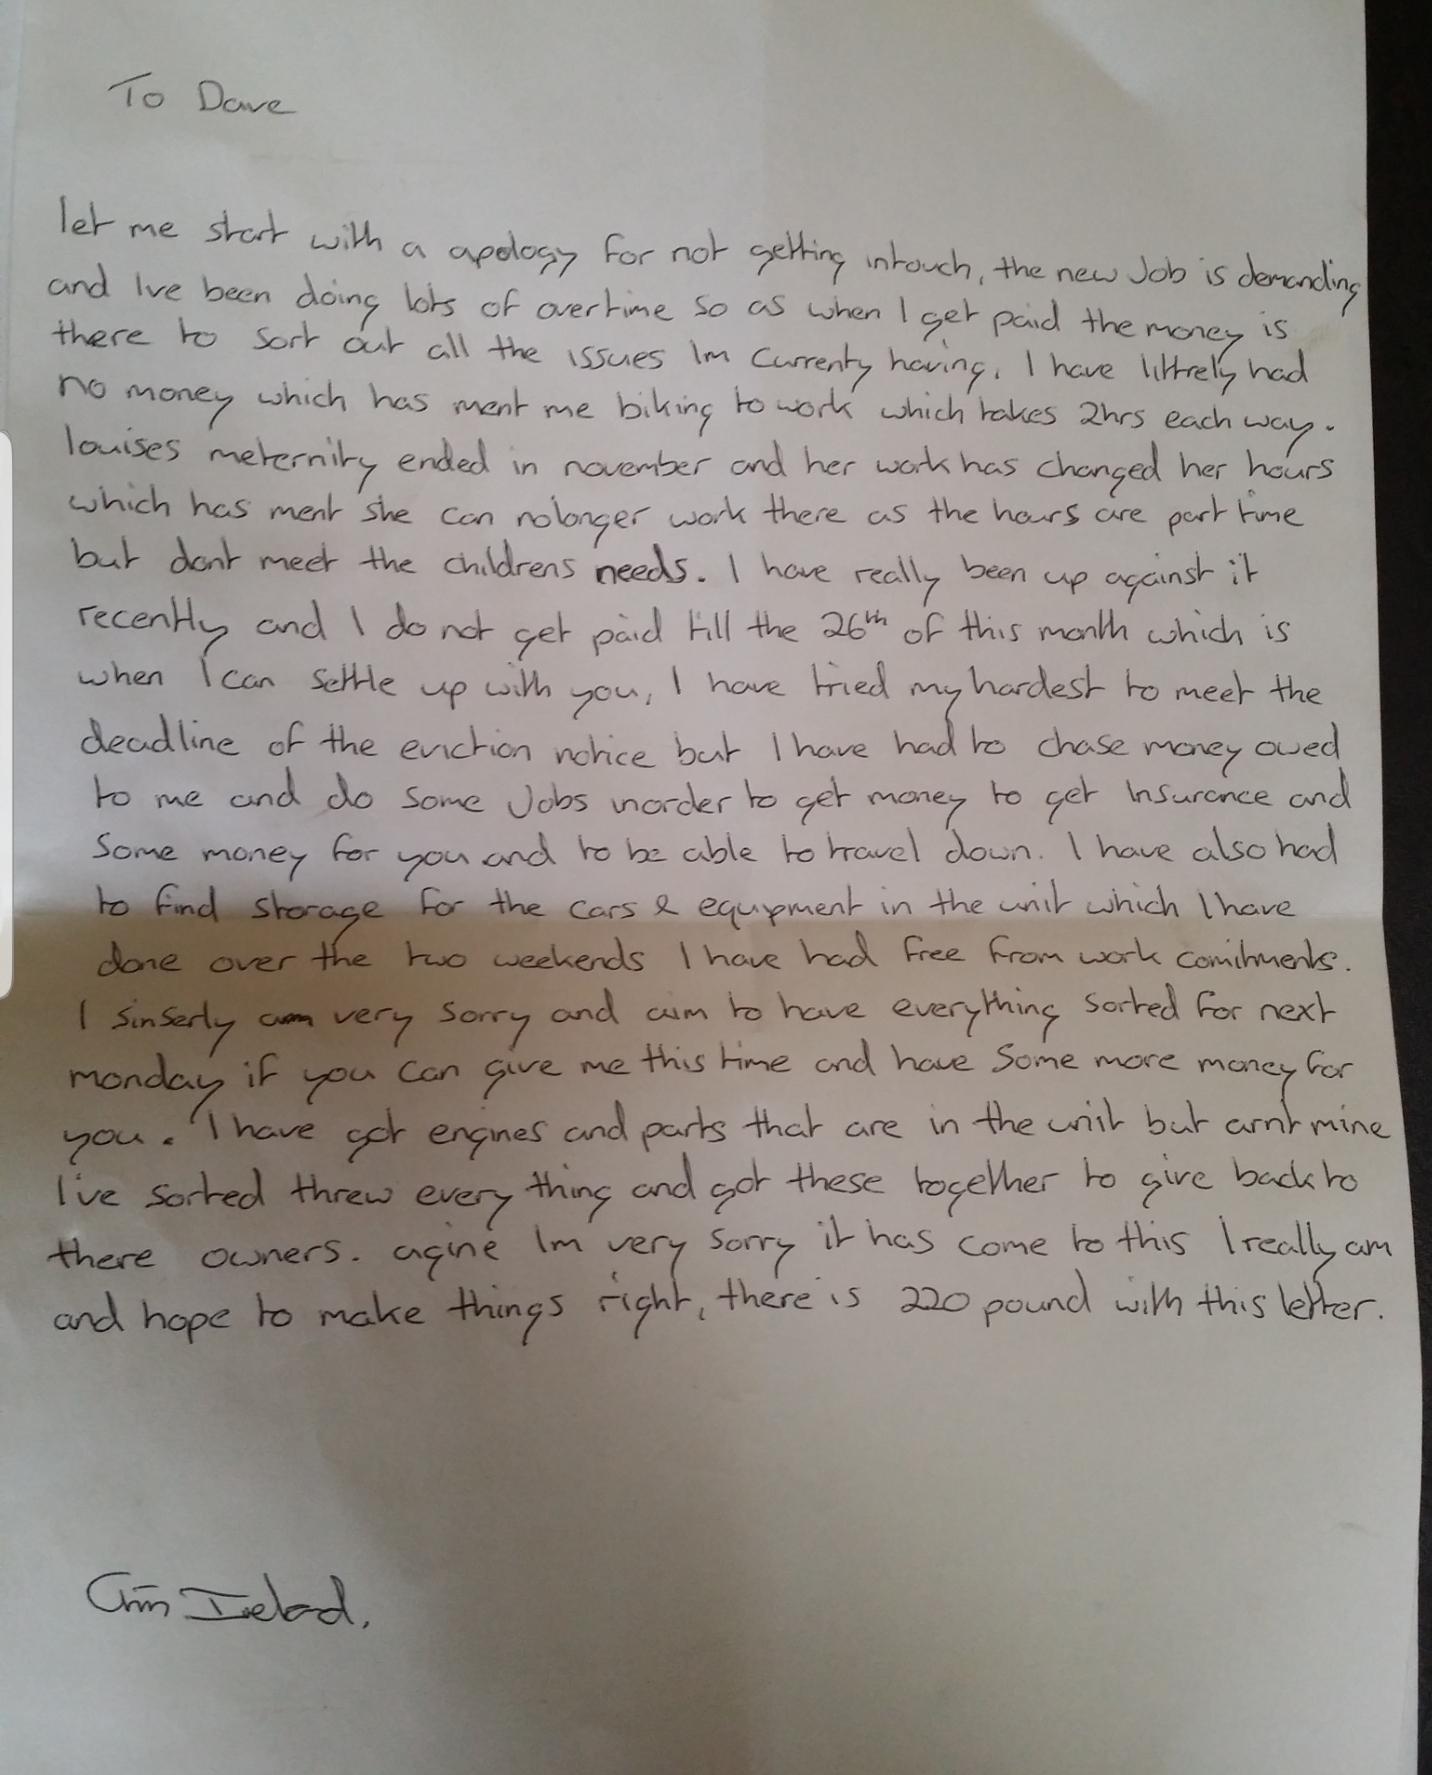 To Dave
let me start with a apology for not getting intouch, the new Job is demanding
and Ive been doing lots of overtime so as when I get paid the money is
there to sort out all the issues Im currenty having. I have littrely had
no money which has ment me biking to work which takes 2hrs each way.
louises meternity ended in november and her work has changed her hours
which has ment she can nolonger work there as the hours are part time
but dont meet the childrens needs. I have really been up against it
recently and I do not get paid till the 26th of this month which is
when I can settle up with you, I have tried my hardest to meet the
deadline of the eviction notice but I have had to chase money owed
to me and do some Jobs inorder to get money to get Insurance and
Some money for you and to be able to travel down. I have also had
to find storage for the cars & equipment in the unit which I have
done over the two weekends I have had free from work comitments.
I sinserly am very sorry and aim to have everything sorted for next
monday if you can give me this time and have some more money for
you. I have got engines and parts that are in the unit but arnt mine
I've sorted threw every thing and got these together to give back to
there owners. agine Im very sorry it has come to this I really am
and hope to make things right, there is 220 pound with this letter.